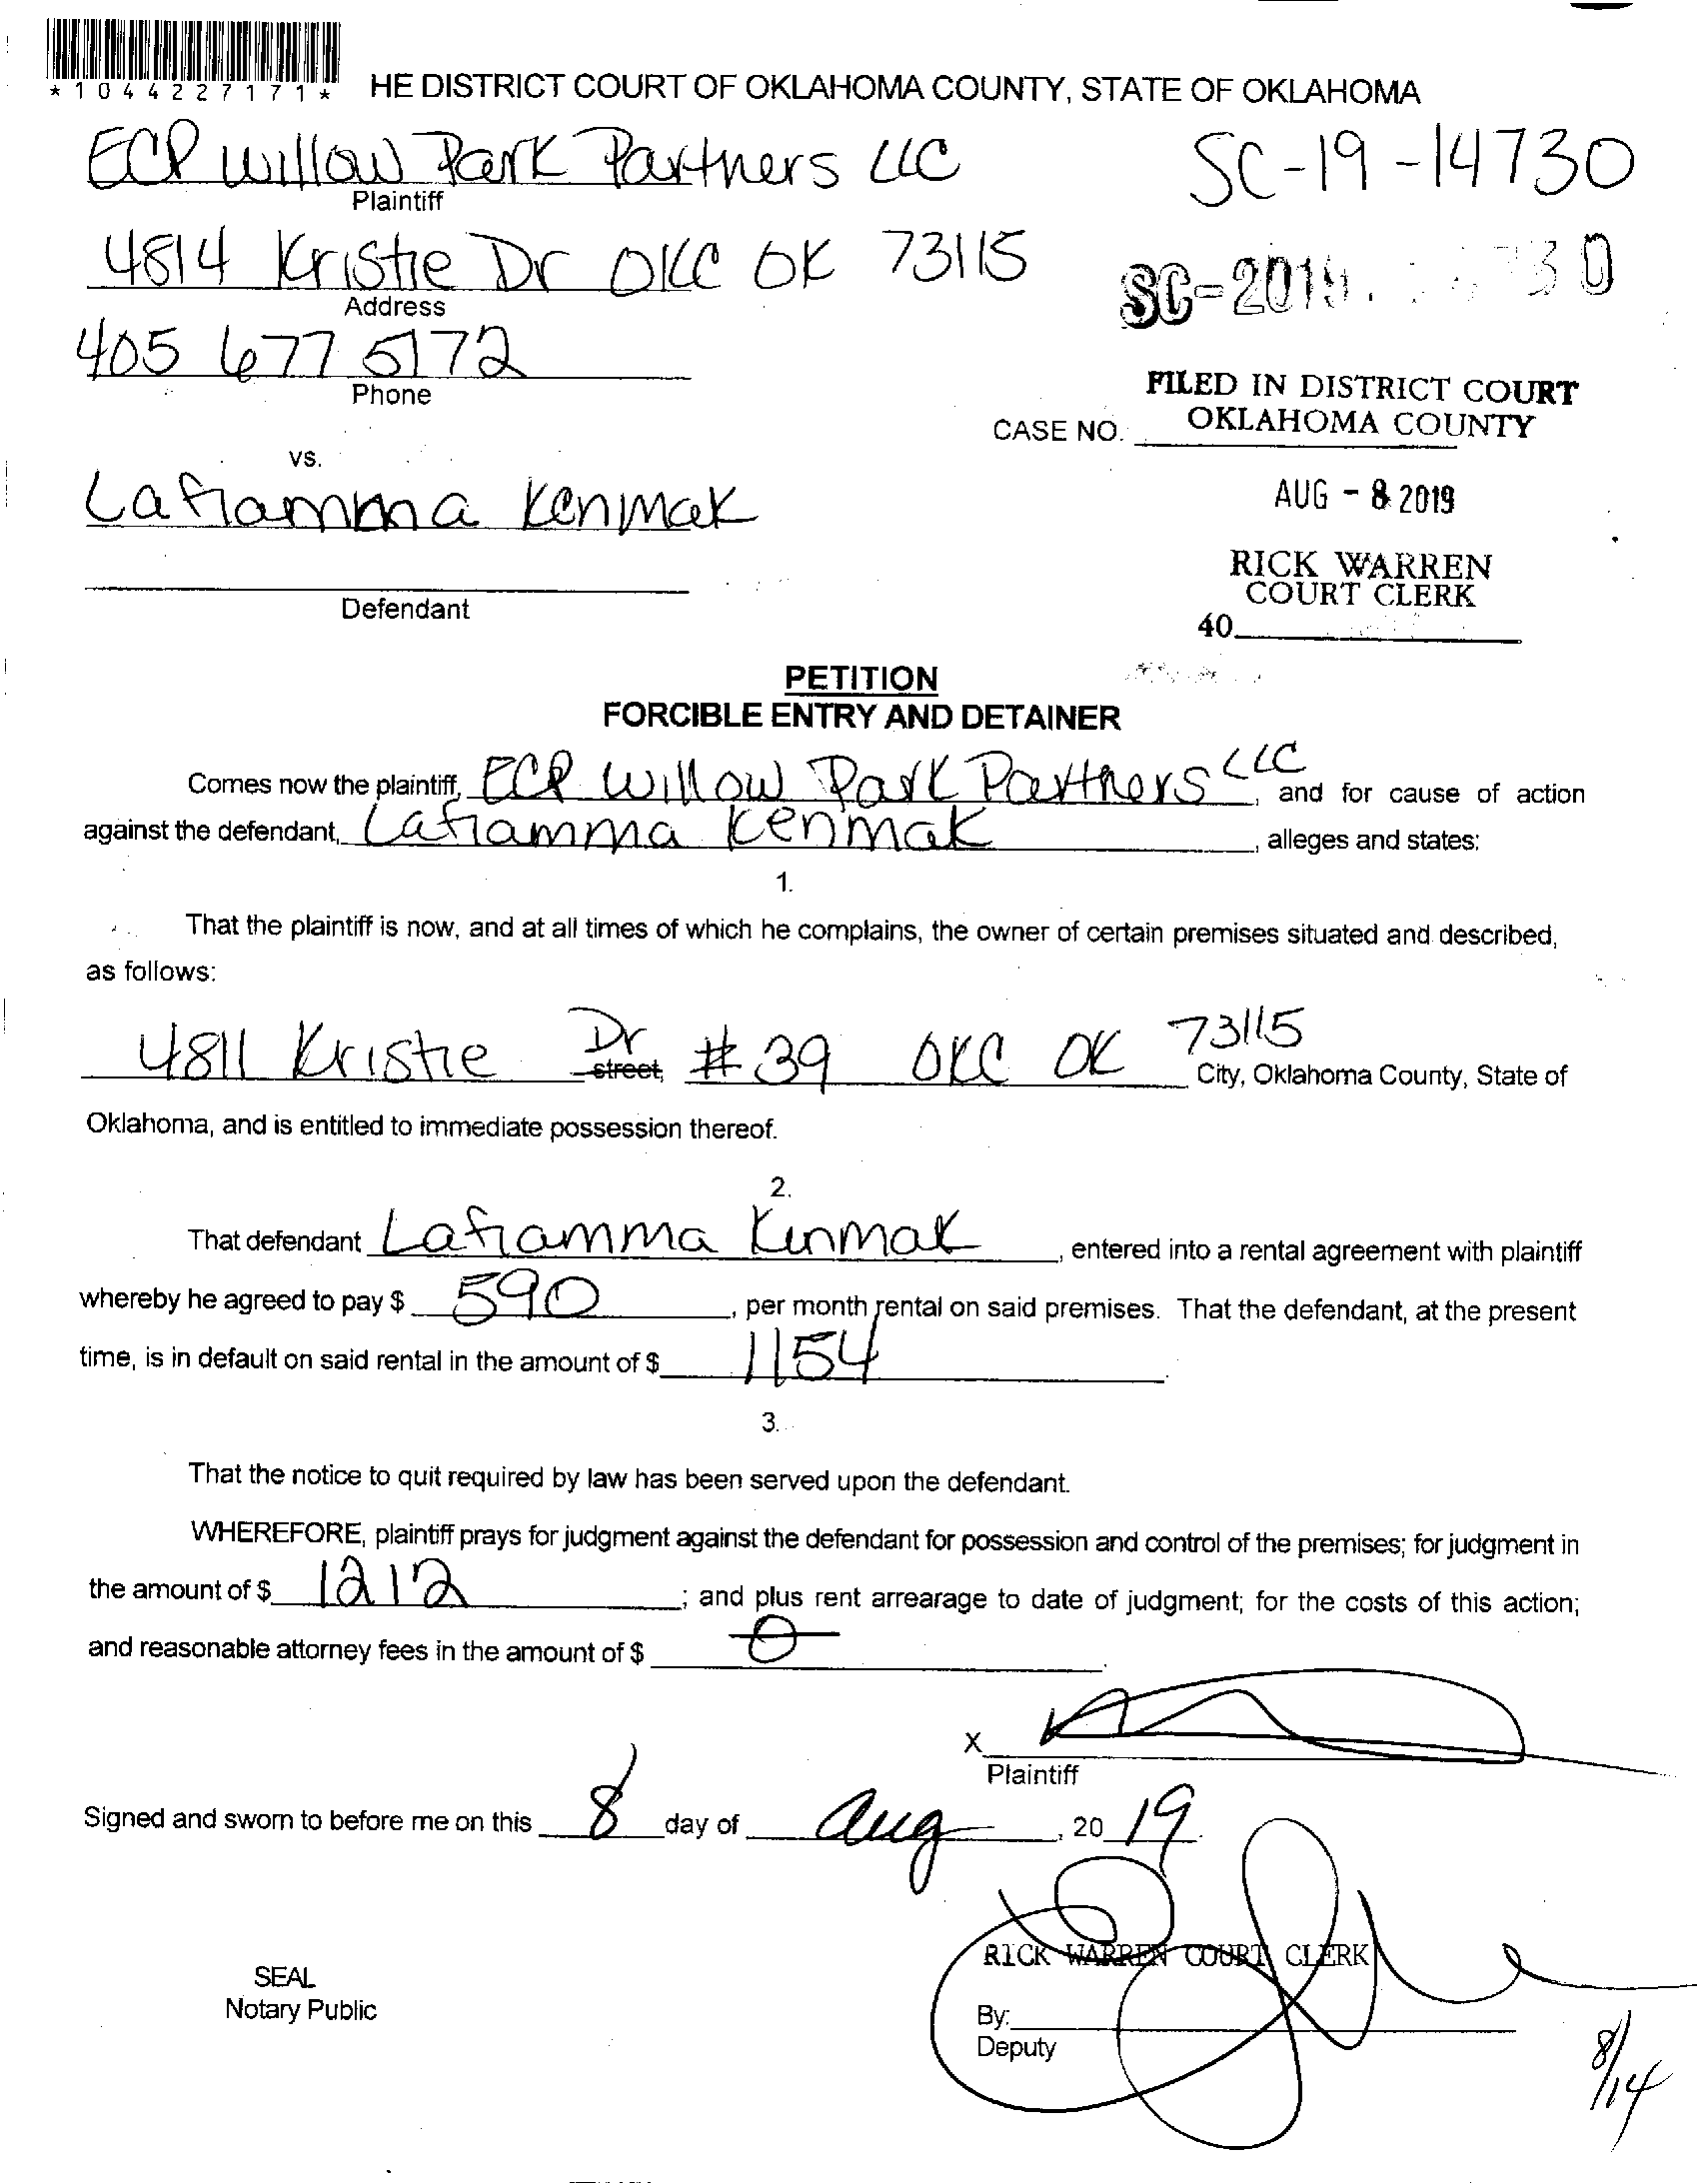 *1044227171*
HE DISTRICT COURT OF OKLAHOMA COUNTY, STATE OF OKLAHOMA
ECP Willow Park Partners LLC
SC-19-14730
Plaintiff
4814 Kristie Dr OKC OK 73115
SC-2019
30
Address
405 677 5172
Phone
FILED IN DISTRICT COURT
OKLAHOMA COUNTY
CASE NO.
vs.
Lafiamma Kenmak
AUG - 8 2019
RICK WARREN
COURT CLERK
Defendant
40
PETITION
FORCIBLE ENTRY AND DETAINER
Comes now the plaintiff, ECP Willow Park Partners LLC, and for cause of action
against the defendant, Lafiamma Kenmak, alleges and states:
1.
That the plaintiff is now, and at all times of which he complains, the owner of certain premises situated and described,
as follows:
4811 Kristie Dr street, #39 OKC OK 73115 City, Oklahoma County, State of
Oklahoma, and is entitled to immediate possession thereof.
2.
That defendant Lafiamma Kenmak, entered into a rental agreement with plaintiff
whereby he agreed to pay $ 590, per month rental on said premises. That the defendant, at the present
time, is in default on said rental in the amount of $ 1154.
3.
That the notice to quit required by law has been served upon the defendant.
WHEREFORE, plaintiff prays for judgment against the defendant for possession and control of the premises; for judgment in
the amount of $ 1212; and plus rent arrearage to date of judgment; for the costs of this action;
and reasonable attorney fees in the amount of $ 0.
X
Plaintiff
Signed and sworn to before me on this 8 day of Aug, 2019.
RICK WARREN COURT CLERK
SEAL
Notary Public
By:
Deputy
8/14